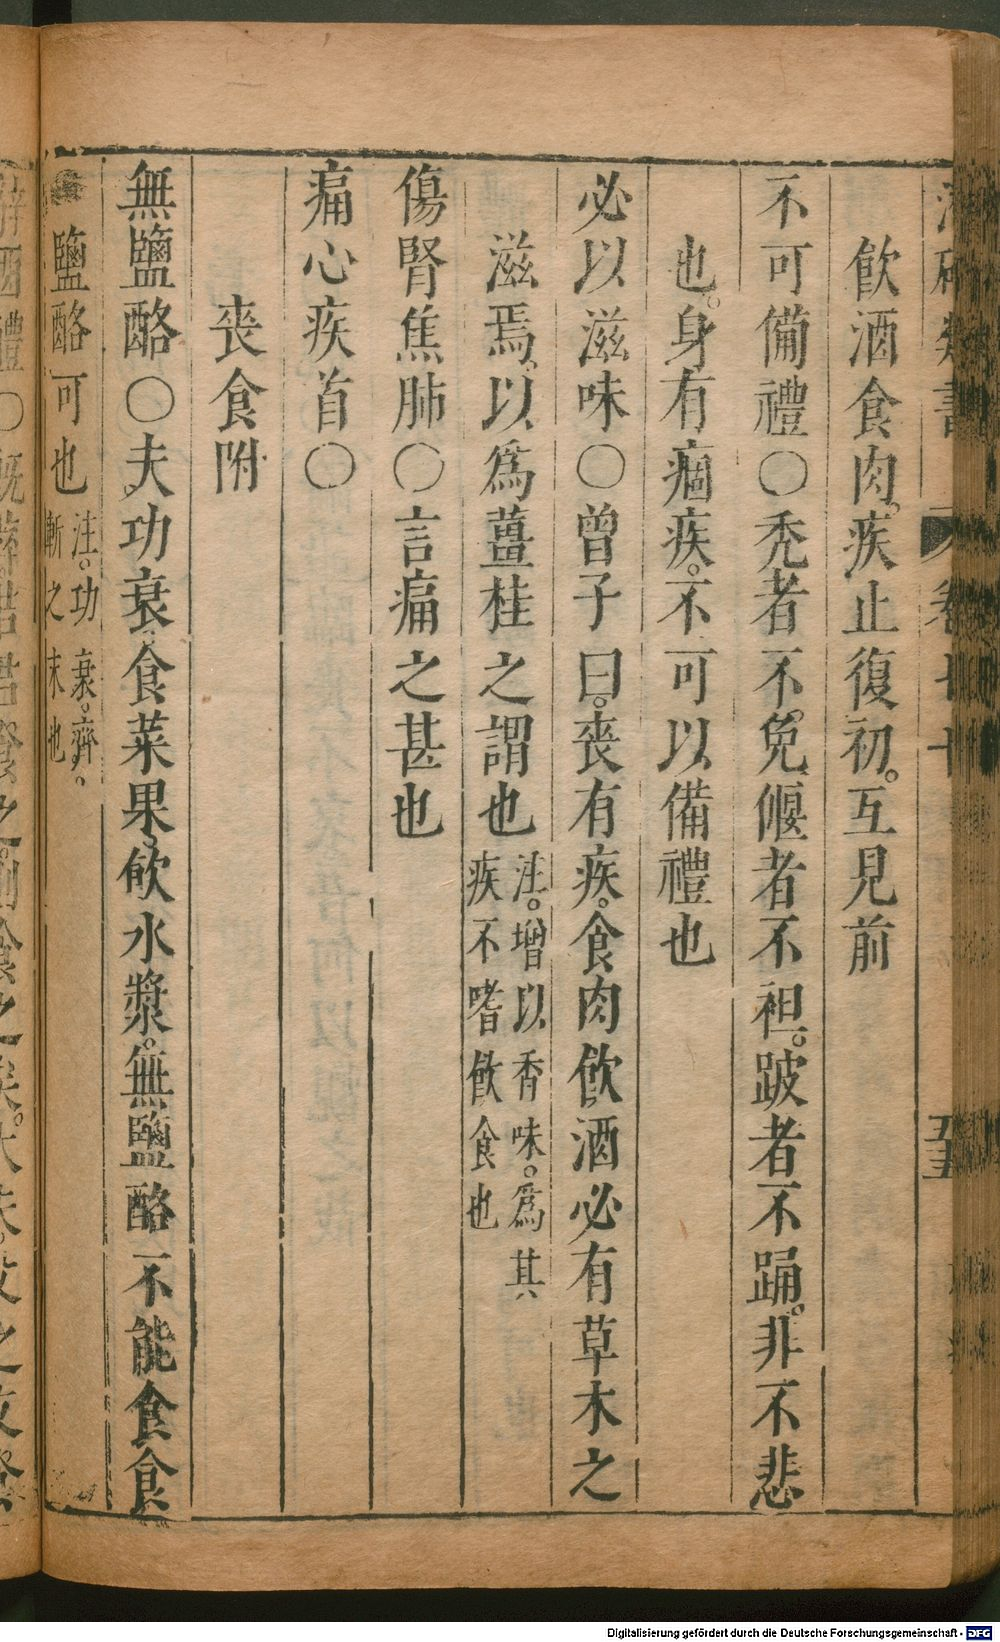 飲酒食肉。疾止復初。互見前
不可備禮○禿者不免。傴者不袒。跛者不踊。非不悲
也。身有痼疾。不可以備禮也
必以滋味○曾子曰。喪有疾。食肉飲酒必有草木之
滋焉、以爲薑桂之謂也注。增以香味。爲其
疾不嗜飲食也
傷腎焦肺○言痛之甚也
痛心疾首○
喪食附
無鹽酪○大功衰食菜果、飲水漿。無鹽酪不能食食
鹽酪可也注。功衰。齊。
斬之末也
卷七十
五五
Digitalisierung gefördert durch die Deutsche Forschungsgemeinschaft - DFG